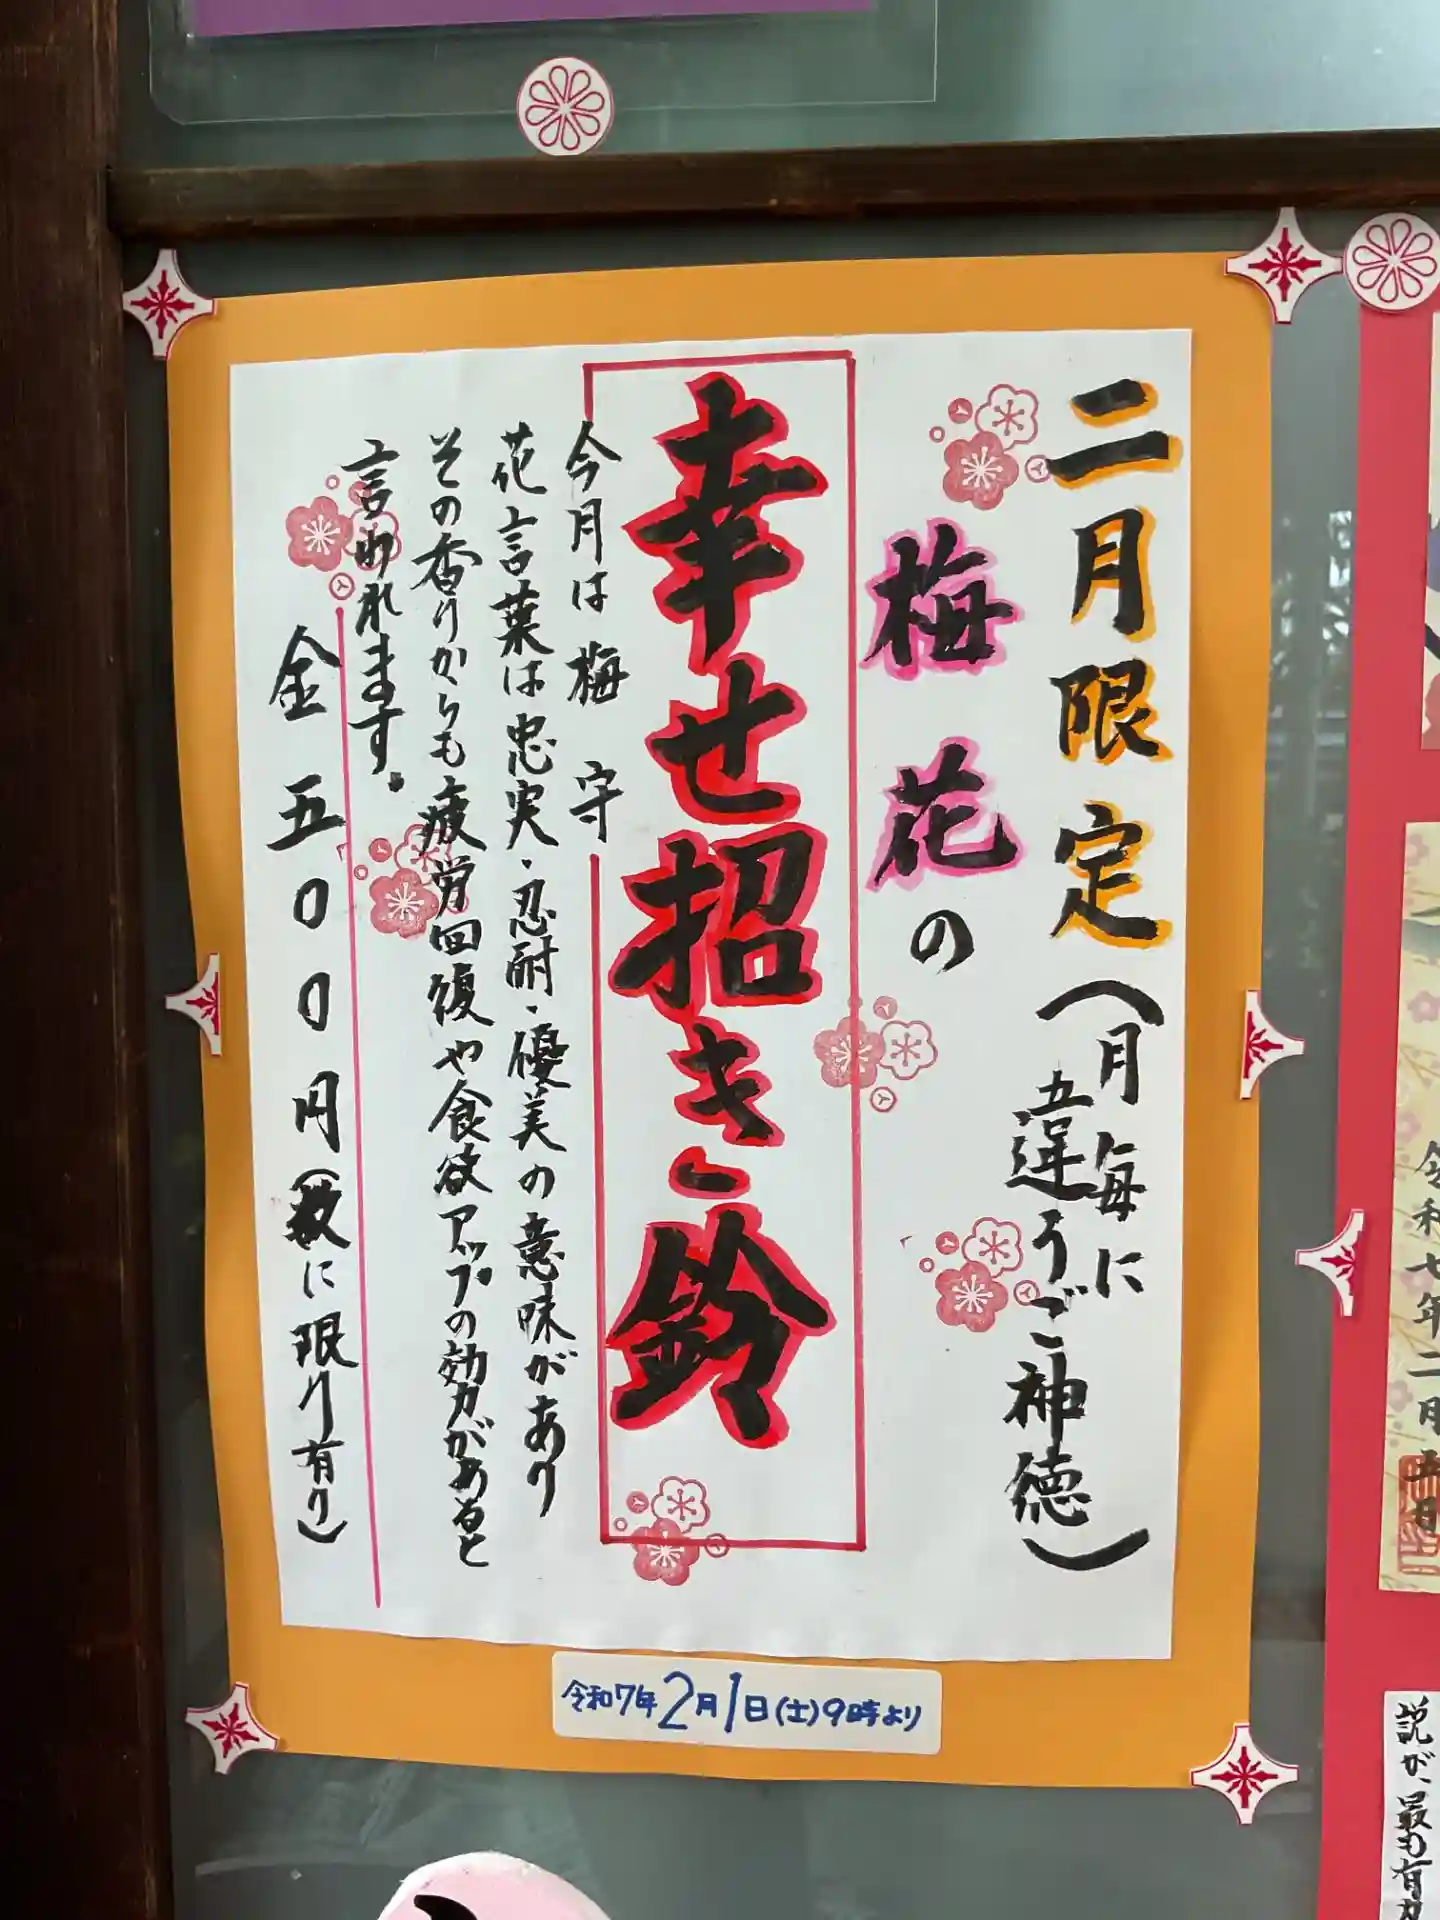 二月限定（月毎に
違うご神徳）
梅花の
幸せ招き鈴
今月は梅守
花言葉は忠実・忍耐・優美の意味があり
その香りからも疲労回復や食欲アップの効力があると
言われます。
金五00円（数に限り有り）
令和7年2月1日(土)9時より
令和七年二月五日
説が、最も有力